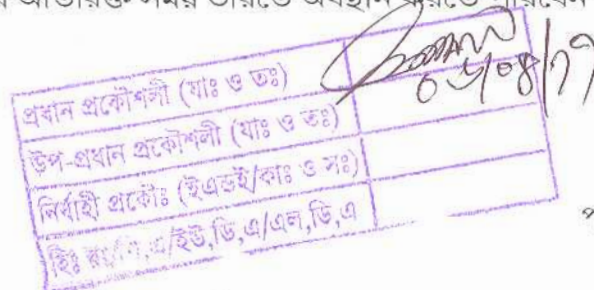 অতিরিক্ত সময় ভারতে অবস্থান করিতে পারিবেন
প্রধান প্রকৌশলী (যাঃ ও তঃ)
উপ-প্রধান প্রকৌশলী (যাঃ ও তঃ)
নির্বাহী প্রকৌঃ (ইএন্ডই/কাঃ ও সঃ)
হিঃ রঃ/সি,এ/ইউ,ডি,এ/এল,ডি,এ